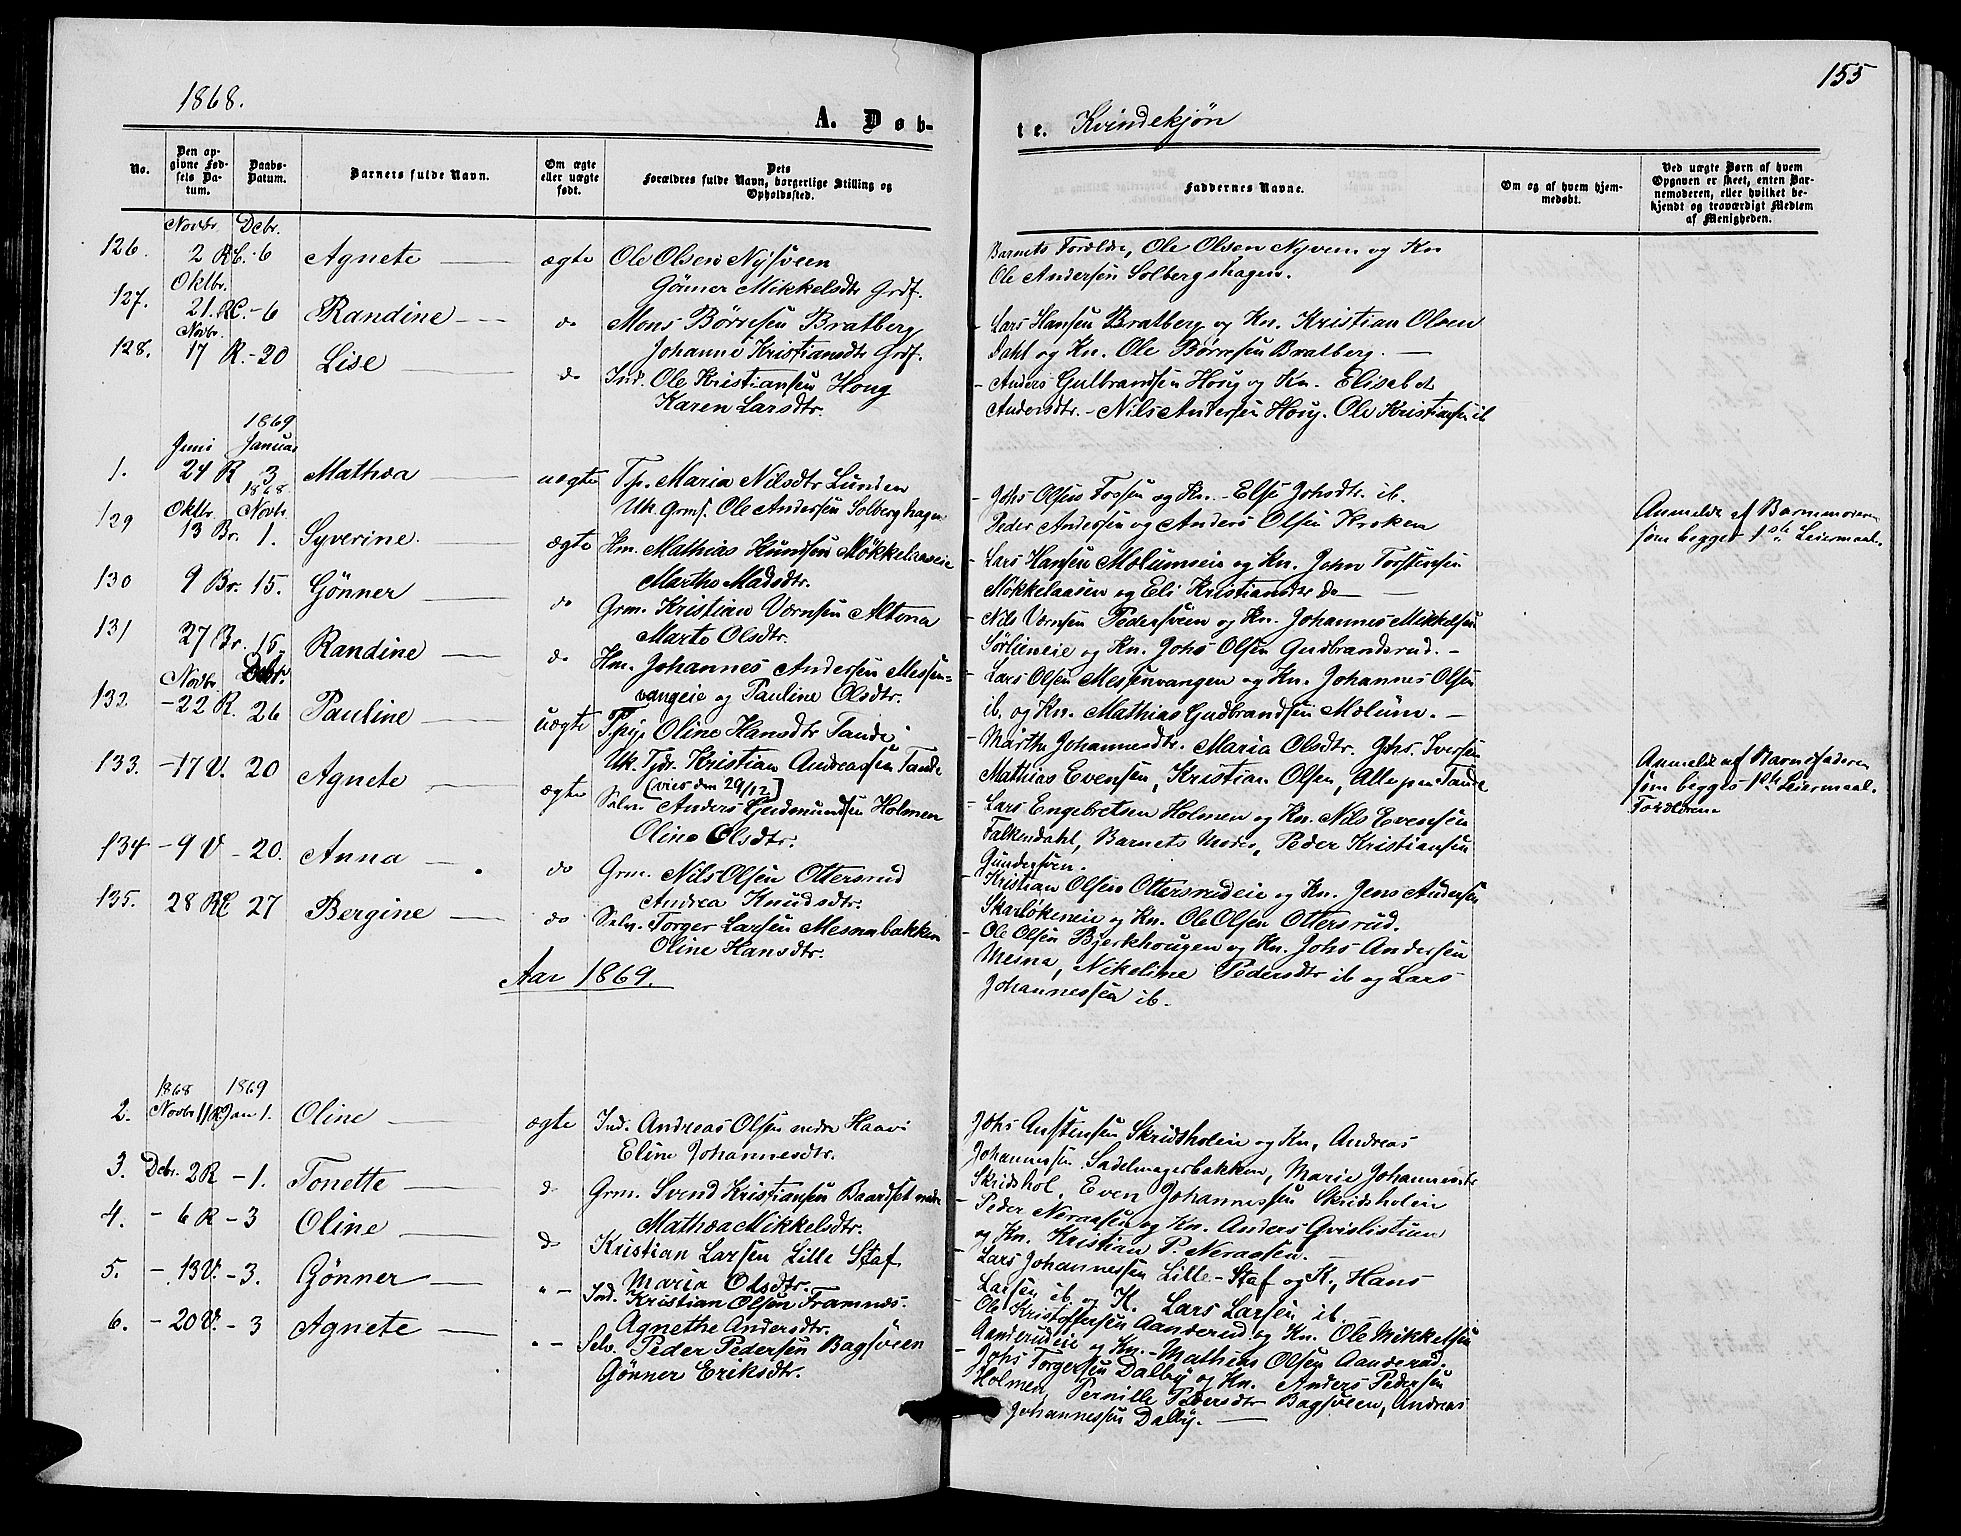 1868.
A. Døb-
No.
Den op-
givne Fød-
sels Da-
tum.
Daabs-
Datum.
Barnets fulde Navn.
Om ægte
eller uægte
født.
Dets
Forældres fulde Navn, borgerlige Stilling og
Opholdssted.
Novbr. Debr.
126. 2 R. 6 Agnete ægte Ole Olsen Nysveen
Oktbr. Gönner Mikkelsdtr Grdf.
127. 21. - 6 Randine do Mons Börresen Bratberg
Novbr. Johanne Kristiansdtr Grdf.
128. 17 R. - 20 Lise do Ind. Ole Kristiansen Houg
Karen Larsdtr.
1869
Juni Januar
1. 24 R 3 Mathea uægte Maria Nilsdtr Lunden
1868
Oktbr Novbr. Uk. Grms. Ole Andersen Solberghagen
129 13 Br. 1. Syverine. ægte Hm. Mathias Knudsen
Marthe Madsdtr.
130 9 Br. 15. Gönner do Grm. Kristian Altona
Marte Olsdtr.
131 27 Br. 15. Randine do Hm. Johannes Andersen Messen=
Novbr Debr. vangeie og Pauline Olsdtr.
132 - 22 R. 26 Pauline uægte Oline Hansdtr Tande
Uk. Tjdr. Kristian Andreassen Tande
(vies den 29/12)
133. - 17 V. 20 Agnete ægte Selv. Anders Holmen
Oline Olsdtr.
134 - 9 V - 20. Anna do Grm. Nils Olsen Ottersrud
Andrea Knudsdtr.
135. 28 27 Bergine do Selv. Torger Larsen Mesnabakken
Oline Hansdtr.
Aar 1869.
1868 1869
2. Novbr 11 R. Jan 1. Oline ægte Ind. Andreas Olsen nedre Haave
Eline Johannesdtr.
3. Debr. 2 R - 1. Tonette d Grm. Svend Kristiansen Baardset nedre
Mathea Mikkelsdtr.
4. - 6 R - 3 Oline d Kristian Larsen Lille Staf
Maria Olsdtr.
5. - 13 V. - 3. Gönner " - Ind. Kristian Olsen Framnes.
Agnethe Andersdtr.
6. - 20 V. - 3 Agnete " - Selv. Peder Pedersen Bagsveen
Gönner Eriksdtr.
155
te. Kvindekjön
Faddernes Navne.
Om og af hvem hjem-
medøbt.
Ved uægte Børn af hvem
Opgaven er skeet, enten Bar-
nemoderen, eller hvilket be-
kjendt og troværdigt Medlem
af Menigheden.
Barnets Forældre, Ole Olsen Nysveen og Kn
Ole Andersen Solbergshagen.
- Lars Hansen Bratberg og Kn. Kristian Olsen
Dahl og Kn. Ole Börresen Bratberg.
- Anders Gulbrandsen Houg og Kn. Elisabet
Andersdtr. - Nils Andersen Houg. Ole Kristiansen ib
- Johs Olsen Fossen og Kn. - Else Johsdtr. ib.
Peder Andersen og Anders Olsen Kroken
Anmeldt af Barnmoderen
som begges 1ste Leiermaal.
- Lars Hansen Mælumseie og Kn. John Torstensen
Mökkelaasen og Eli Kristiansdtr do
- Nils Pedersveen og Kn. Johannes Mikkelsen
Sörlieneie og Kn. Johs Olsen Gudbrandsrud. -
- Lars Olsen Messenvangen og Kn. Johannes Olsen
ib. og Kn. Mathias Gudbrandsen Mælum. -
- Marthe Johannesdtr. Maria Olsdtr. Johs. Iversen
Mathias Evensen, Kristian Olsen, Alle paa Tande
Anmeldt af Barnefaderen
som begges 1ste Leiermaal.
Forældrene
- Lars Engebretsen Holmen og Kn. Nils Evensen
Falkendahl, Barnets Moder, Peder Kristiansen
Gundersveen.
- Kristian Olsen Ottersrudeie og Kn. Jens Andersen
Skarlökeneie og Kn. Ole Olsen Ottersrud.
- Ole Olsen Bjerkhougen og Kn. Johs Andersen
Mesna, Nikoline Pedersdtr ib og Lars
Johannessen ib.
Johs Austensen Skridsholeie og Kn, Andreas
Johannessen Sadelmagerbakken, Marie Johannesdtr
Skridshol, Even Johannessen Skridsholeie
- Peder Neraasen og Kn. Anders Qvislistuen
og Kn. Kristian P. Neraasen.
- Lars Johannessen Lille-Staf og K., Hans
Larsen ib. og K. Lars Larsen ib.
- Ole Kristoffersen Aanderud og Kn. Ole Mikkelsen
Aanderudeie og Kn. - Mathias Olsen Aanderud.
- Johs Torgersen Dalby og Kn. Anders Pedersen
Holmen, Pernille Pedersdtr Bagsveen, Andreas
Johannessen Dalby.